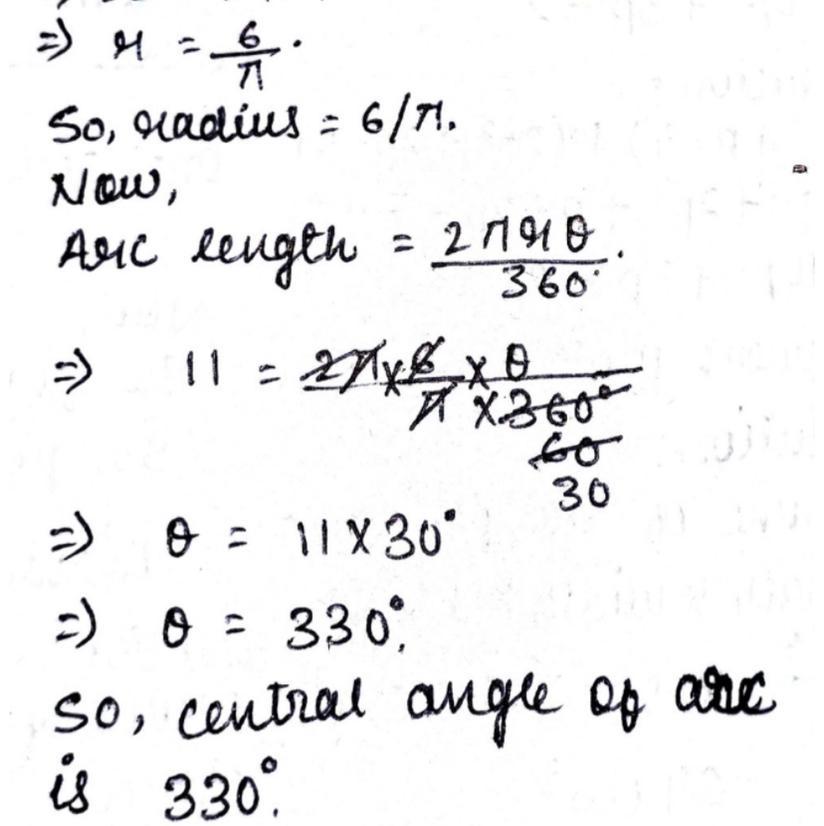 ⇒ r = 6/π.
So, radius = 6/π.
Now,
Arc length = 2πrθ/360°.
⇒ 11 = 2π × 6/π × θ/×360°
60
30
⇒ θ = 11 × 30°
⇒ θ = 330°.
So, central angle of arc
is 330°.